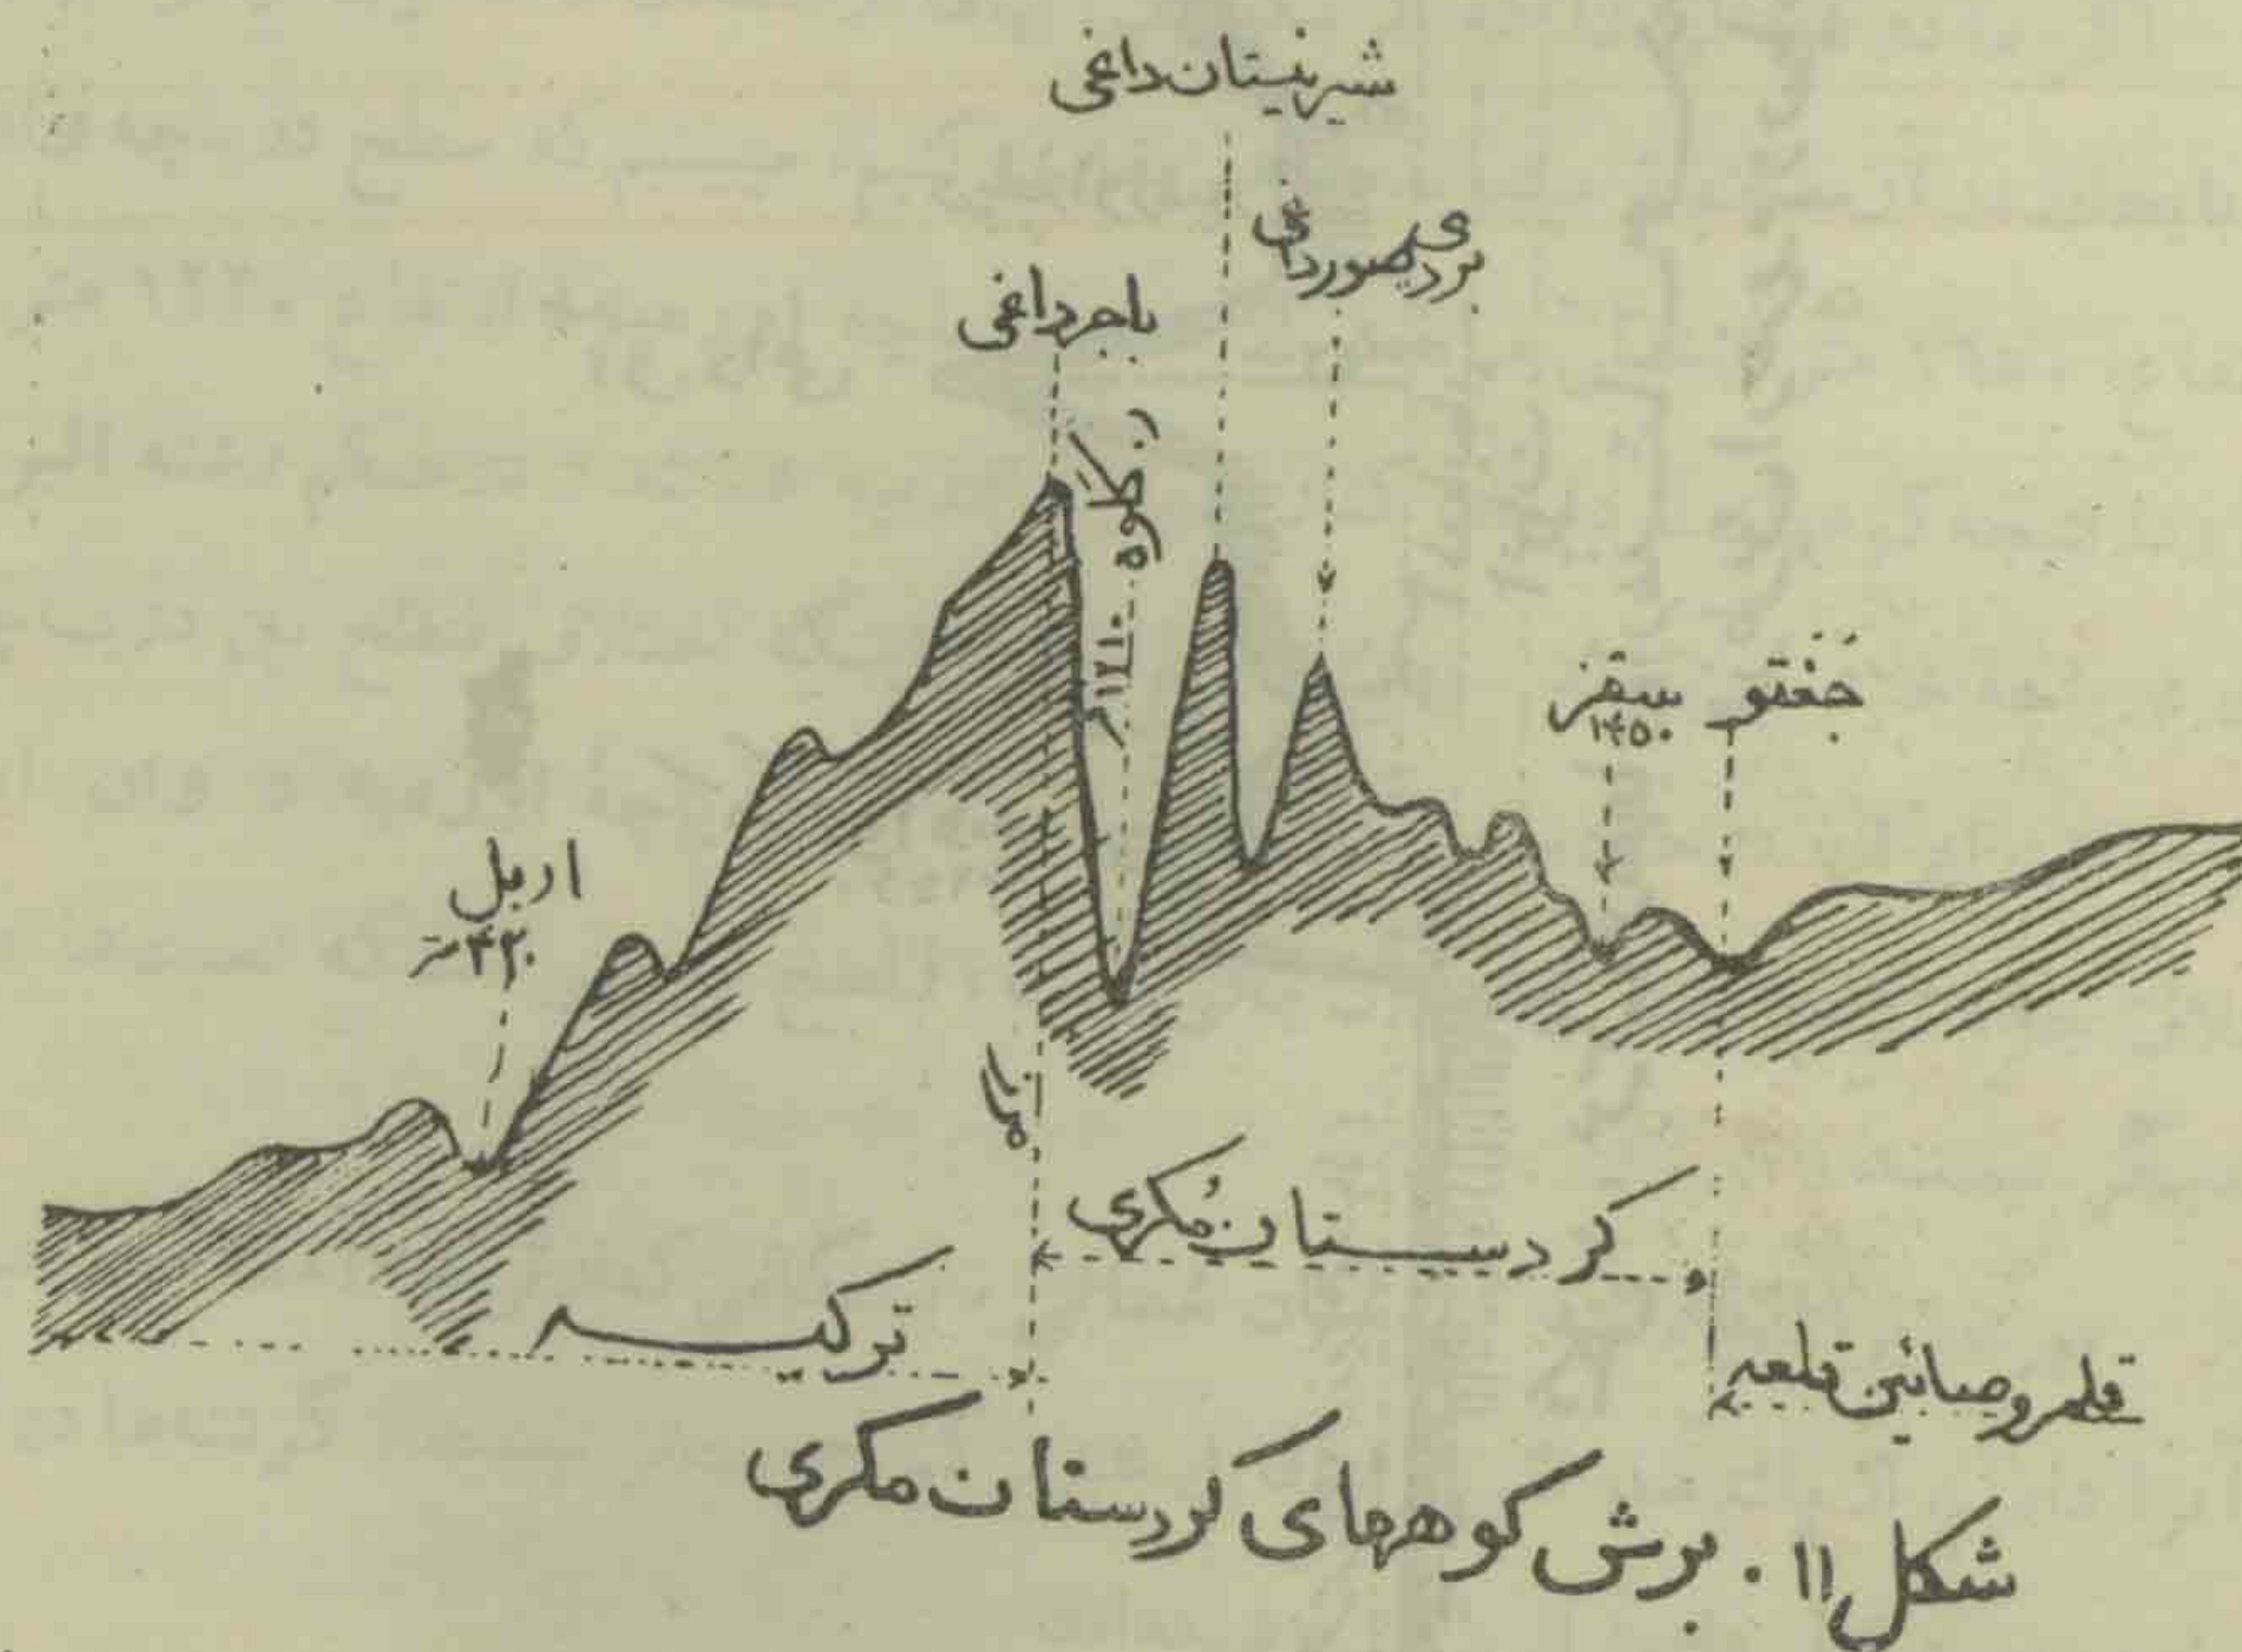 شیرنیستان داغی
باجرداغی
ر. کلوه
۱۲۱۰ متر
جغتو
سقز
۱۴۵۰
اربل
۴۳۰ متر
کردستان مکری
ترکیه
قلمرو صائین قلعه
شکل ۱۱. برش کوههای کردستان مکری